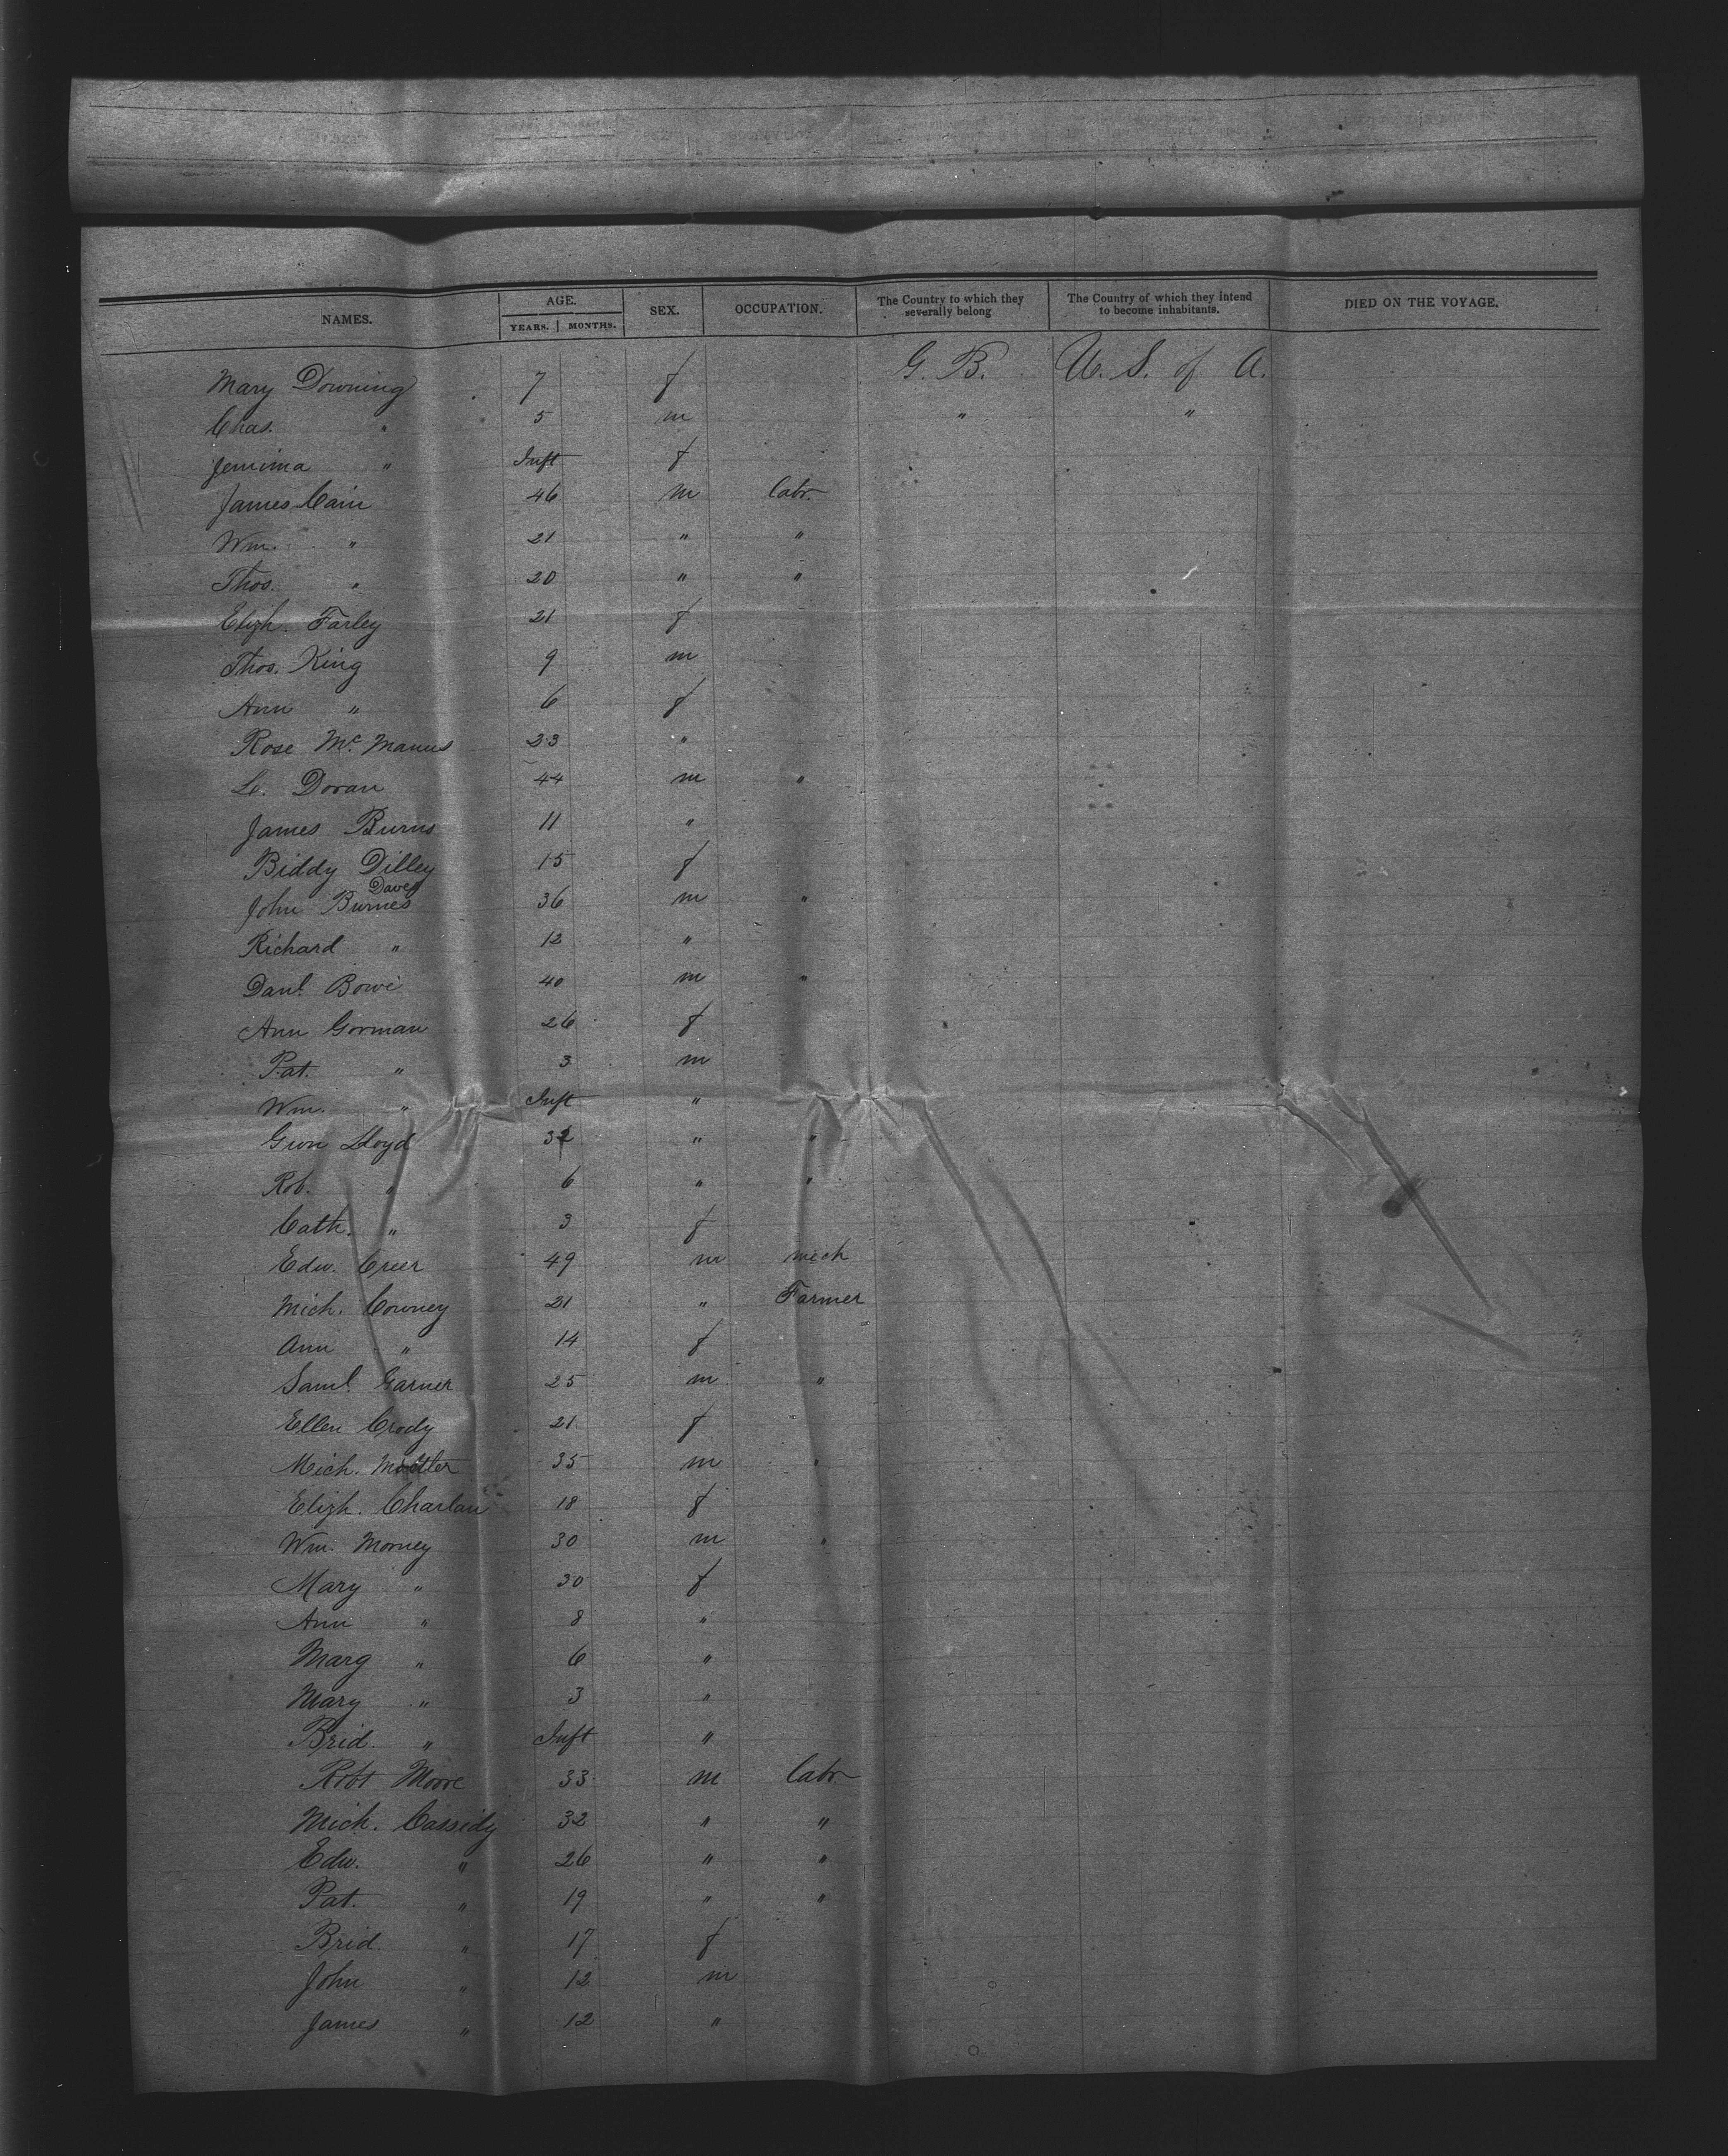 NAMES. AGE. YEARS. MONTHS. SEX. OCCUPATION. The Country to which they severally belong The Country of which they intend to become inhabitants. DIED ON THE VOYAGE.
Mary Downing 7 f G. B. U. S. of A.
Chas. " 5 m " "
Jemima " Inft f
James Cain 46 m labr.
Wm. " 21 " "
Thos. " 20 " "
Elizh. Farley 21 f
Thos. King 9 m
Ann " 6 f
Rose Mc. Manus 23 "
L. Doran 44 m "
James Burns 11 "
Biddy Dilley 15 f
Davey
John Burnes 36 m "
Richard " 12 "
Danl. Bowe 40 m "
Ann Gorman 26 f
Pat. " 3 m
Wm. " Inft "
Gwn Lloyd " "
Rob. " 6 " "
Cath. " 3 f
Edw. Creer 49 m mech
Mich. Cowney 21 " Farmer
Ann " 14 f
Saml. Garner 25 m "
Ellen Crody 21 f
Mich. 35 m "
Elizh. Charlan 18 f
Wm. Morney 30 m "
Mary " 30 f
Ann " 8 "
Marg " 6 "
Mary " 3 "
Brid. " Inft "
Robt Moore 33 m labr
Mich. Cassidy 32 " "
Edw. " 26 " "
Pat. " 19 " "
Brid. " 17 f
John " 12 m
James " 12 "